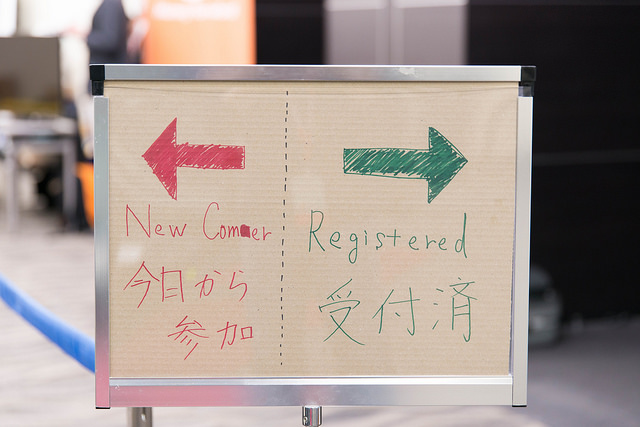 New Comer
今日から
参加
Registered
受付済